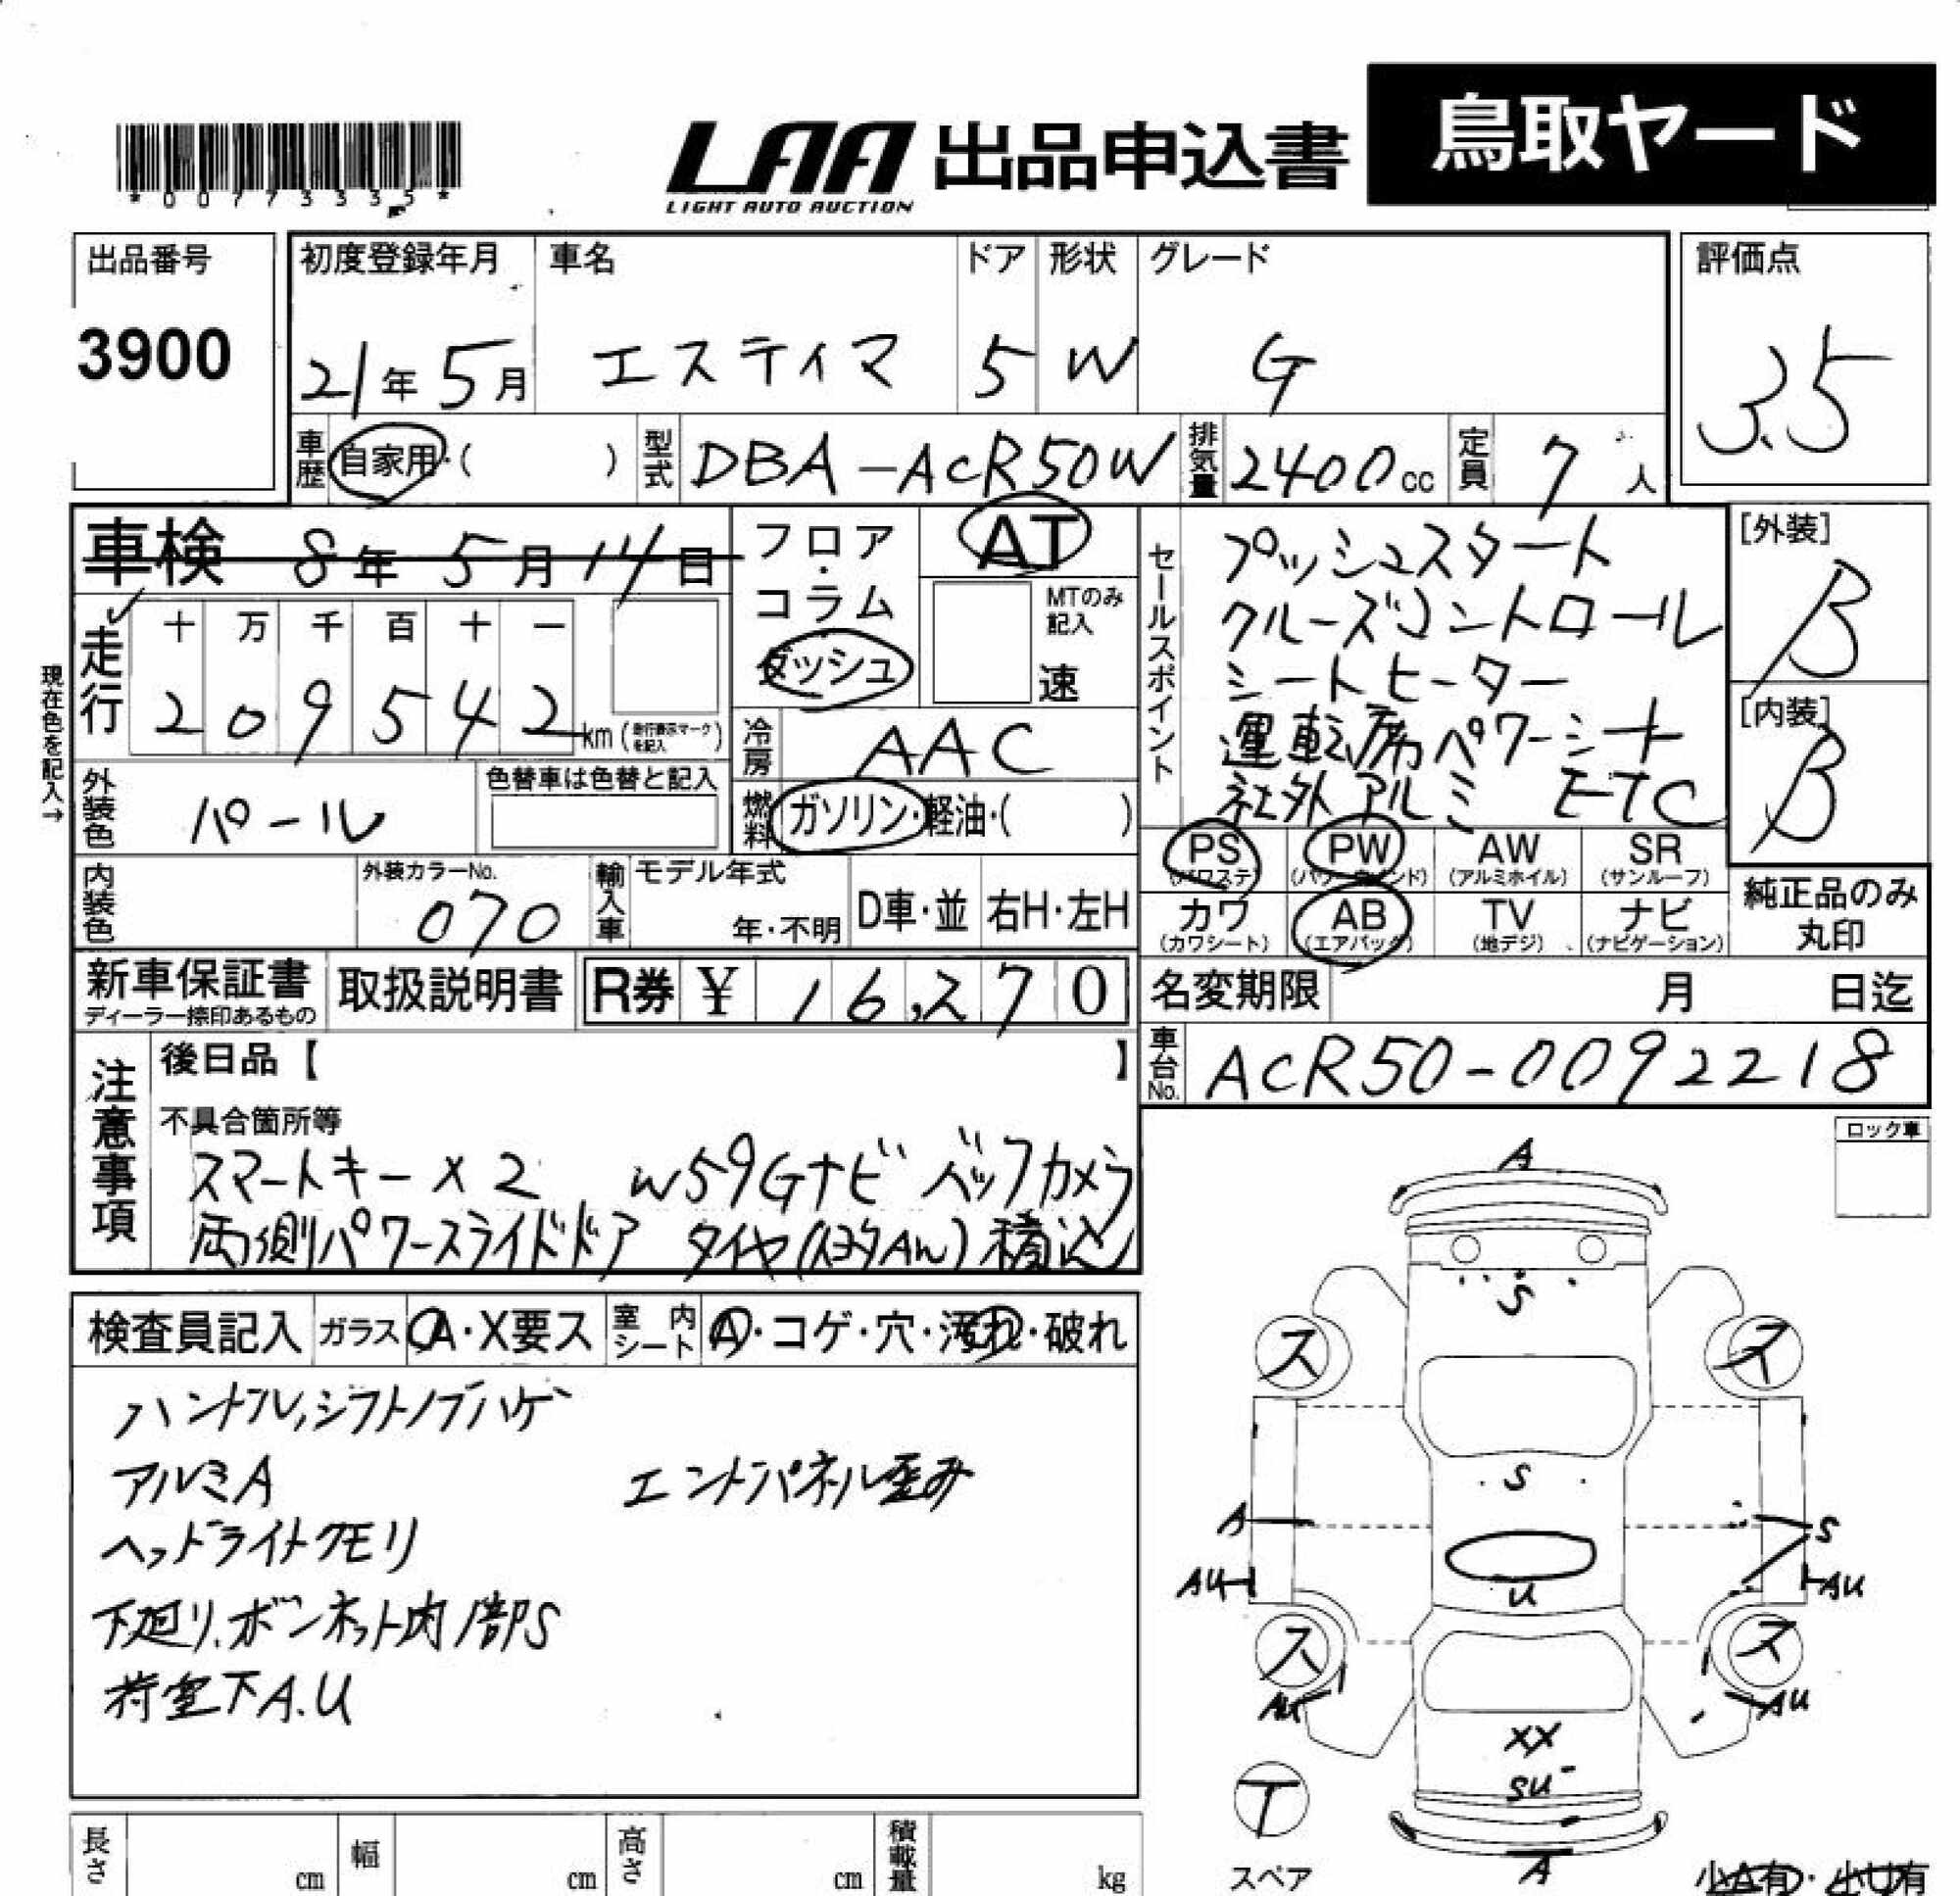 *00773335*
LAA 出品申込書 鳥取ヤード
LIGHT AUTO AUCTION
出品番号
3900
初度登録年月
21年5月
車名
エスティマ
ドア
5
形状
W
グレード
G
評価点
3.5
車歴
自家用・( )
型式
DBA-ACR50W
排気量
2400cc
定員
7人
車検 8年5月14日
走行
十 万 千 百 十 一
2 0 9 5 4 2 km(走行表示マークを記入)
現在色を記入→
外装色
パール
色替車は色替と記入
内装色
外装カラーNo.
070
フロア・コラム・ダッシュ
AT
MTのみ記入
速
冷房
AAC
燃料
ガソリン・軽油・( )
輸入車
モデル年式
年・不明
D車・並
右H・左H
セールスポイント
プッシュスタート
クルーズコントロール
シートヒーター
運転席パワーシート
社外アルミ ETC
[外装]
B
[内装]
B
PS
(パワステ)
PW
(パワーウインド)
AW
(アルミホイル)
SR
(サンルーフ)
カワ
(カワシート)
AB
(エアバック)
TV
(地デジ)
ナビ
(ナビゲーション)
純正品のみ
丸印
新車保証書
ディーラー捺印あるもの
取扱説明書
R券 ¥ 16,270
名変期限 月 日迄
車台No.
ACR50-0092218
注意事項
後日品【 】
不具合箇所等
スマートキー×2 W59Gナビ バックカメラ
両側パワースライドドア タイヤ(AW)積込
ロック車
検査員記入
ガラス
A・X要ス
室内シート
A・コゲ・穴・汚れ・破れ
ハンドル,シフトノブハゲ
アルミA エンドパネル歪み
ヘッドライトクモリ
下廻り.ボンネット内部S
荷室下A.U
A
S
ス ス
S
A S
AU U AU
ス ス
AU AU
XX
SU
T
スペア
A
小A有・小U有
長さ cm
幅 cm
高さ cm
積載量 kg